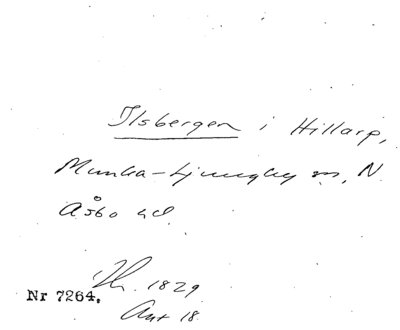 Ilsbergen i Hillarp,
Munka-Ljungby sn, N.
Åsbo hd.
1829
Nr 7264.
Ant 18.